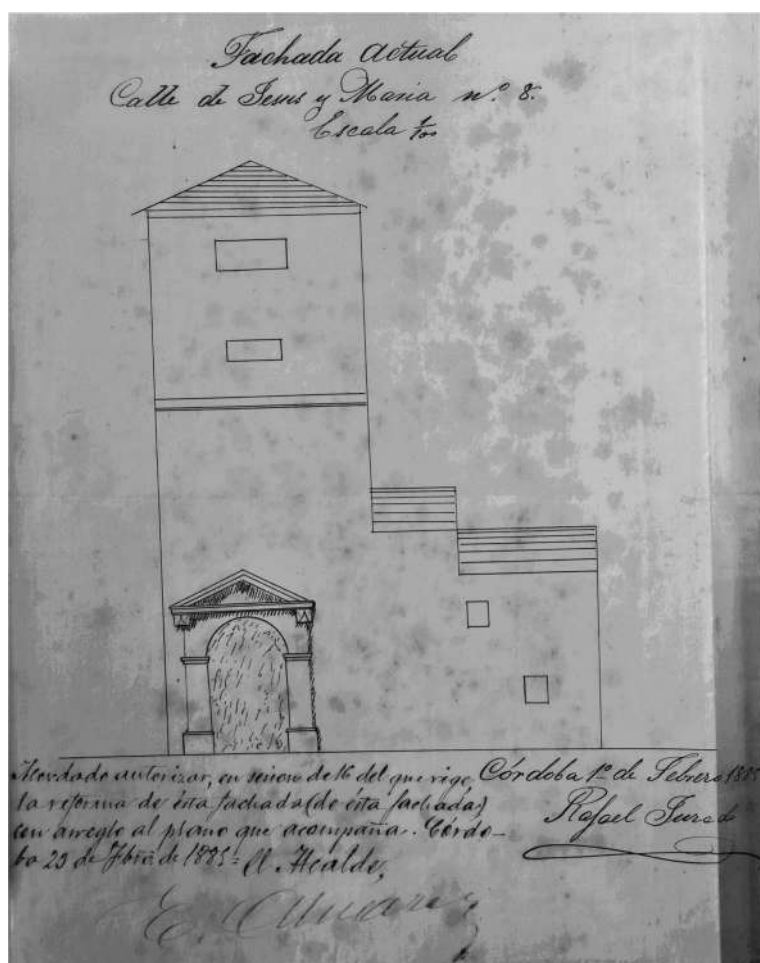 Fachada actual
Calle de Jesus y Maria nº 8.
Escala 1/100
Acordado autorizar, en sesion de 16 del que rige
la reforma de ésta fachada (de ésta fachada)
con arreglo al plano que acompaña. Córdo-
ba 23 de de 1885 = El Alcalde,
Córdoba 1º de Febrero 1885
Rafael Jurado